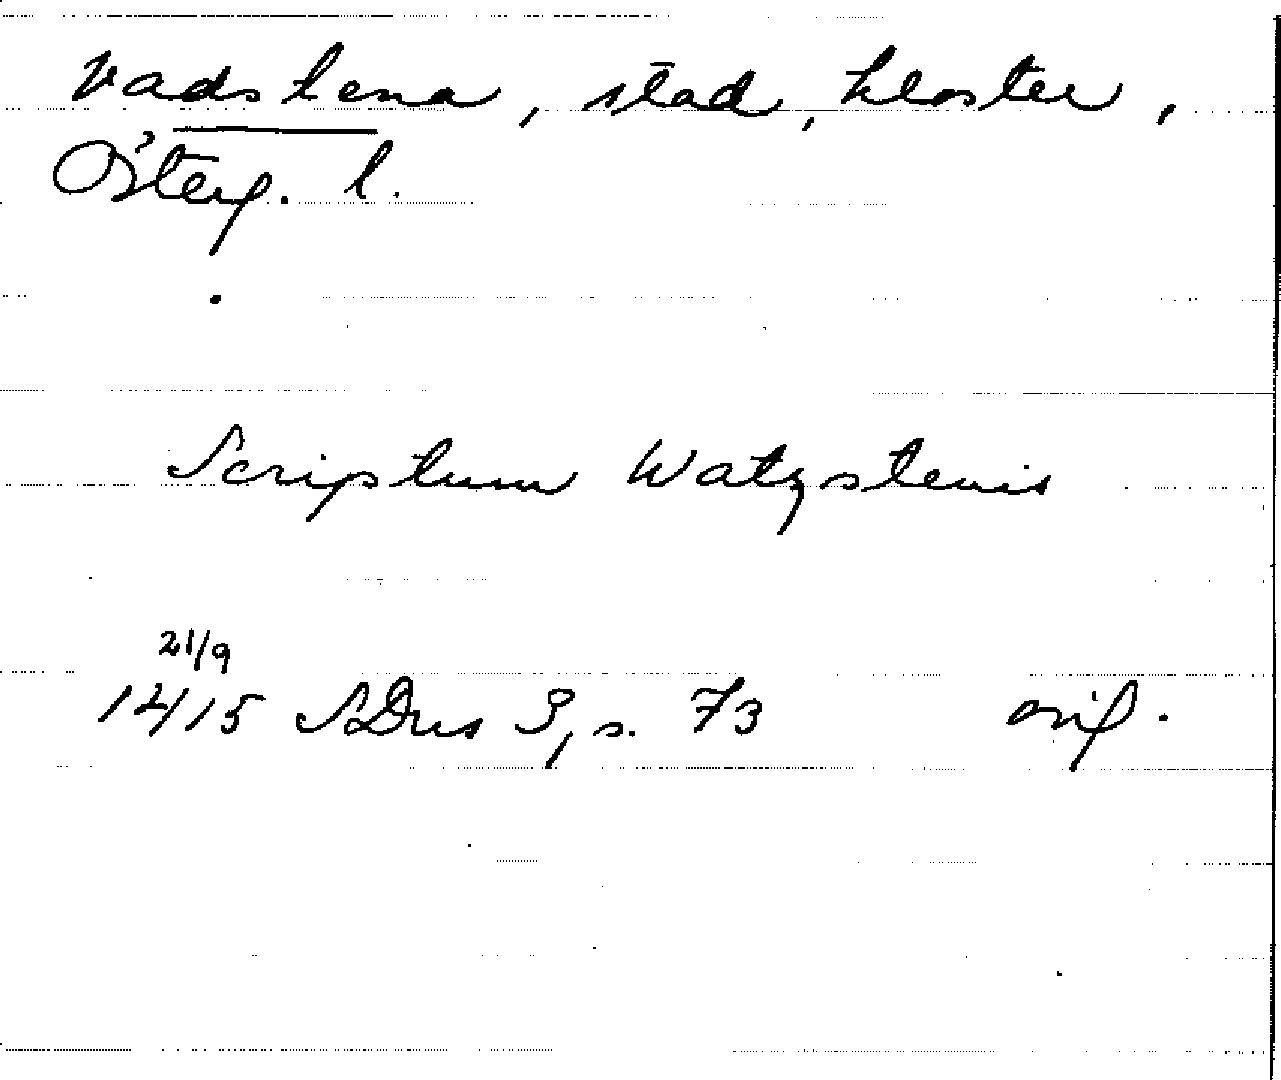 Vadstena, stad, kloster,
Österg. l.
Scriptum Watzstenis
21/9
1415 SDns 3, s. 73 orig.